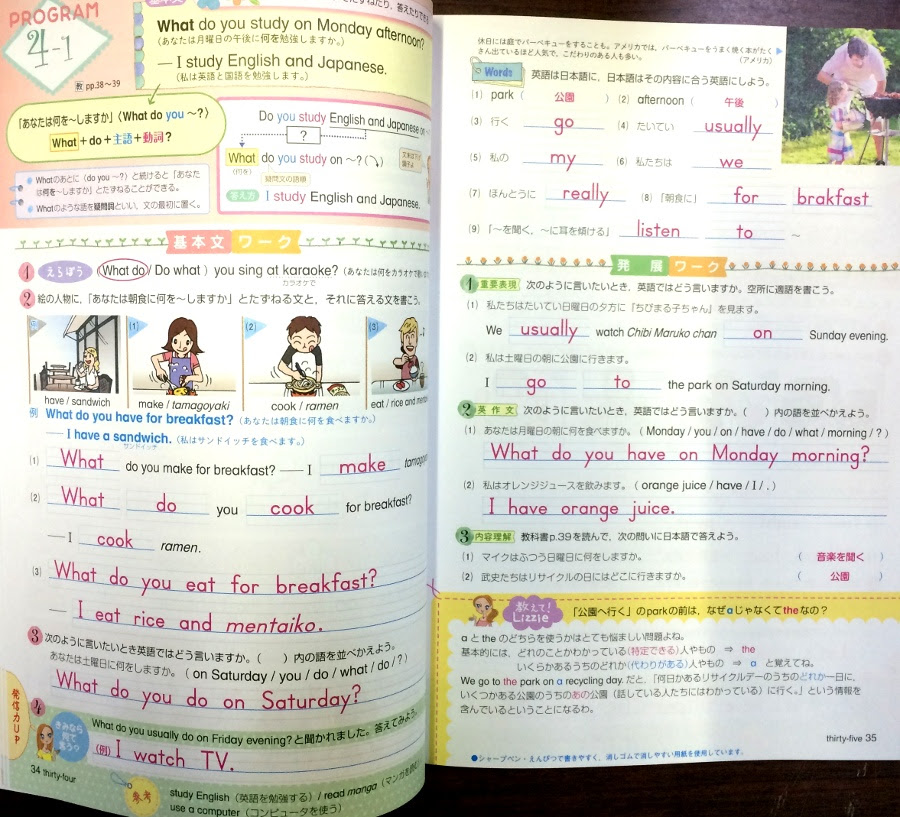 PROGRAM
4-1
教 pp.38～39
基本文
What do you study on Monday afternoon?
(あなたは月曜日の午後に何を勉強しますか。)
— I study English and Japanese.
(私は英語と国語を勉強します。)
「あなたは何を～しますか」〈What do you ～?〉
What＋do＋主語＋動詞？
Whatのあとに〈do you ～?〉と続けると「あなたは何を～しますか」とたずねることができる。
Whatのような語を疑問詞といい、文の最初に置く。
Do you study English and Japanese on
?
What do you study on ～?
(何を)
疑問文の語順
答え方 I study English and Japanese.
基本文ワーク
1 えらぼう ( What do / Do what ) you sing at karaoke?
カラオケで
2 絵の人物に、「あなたは朝食に何を～しますか」とたずねる文と、それに答える文を書こう。
例
(1)
(2)
(3)
have / sandwich
make / tamagoyaki
cook / ramen
eat / rice and
例 What do you have for breakfast? (あなたは朝食に何を食べますか。)
— I have a sandwich. (私はサンドイッチを食べます。)
サンドイッチ
(1) What do you make for breakfast? — I make
(2) What do you cook for breakfast?
— I cook ramen.
(3) What do you eat for breakfast?
— I eat rice and mentaiko.
3 次のように言いたいとき英語ではどう言いますか。( )内の語を並べかえよう。
あなたは土曜日に何をしますか。( on Saturday / you / do / what / do / ? )
What do you do on Saturday?
発信力UP
4 きみなら何て言う?
What do you usually do on Friday evening? と聞かれました。答えてみよう。
(例) I watch TV.
34 thirty-four
参考
study English (英語を勉強する) / read manga (マンガを読む)
use a computer (コンピュータを使う)
休日には庭でバーベキューをすることも。アメリカでは、バーベキューをうまく焼く本がたくさん出ているほど人気で、こだわりのある人も多い。
(アメリカ)
Words 英語は日本語に、日本語はその内容に合う英語にしよう。
(1) park ( 公園 ) (2) afternoon ( 午後 )
(3) 行く go (4) たいてい usually
(5) 私の my (6) 私たちは we
(7) ほんとうに really (8) 「朝食に」 for brakfast
(9) 「～を聞く、～に耳を傾ける」 listen to ～
発展ワーク
1 重要表現 次のように言いたいとき、英語ではどう言いますか。空所に適語を書こう。
(1) 私たちはたいてい日曜日の夕方に「ちびまる子ちゃん」を見ます。
We usually watch Chibi Maruko chan on Sunday evening.
(2) 私は土曜日の朝に公園に行きます。
I go to the park on Saturday morning.
2 英作文 次のように言いたいとき、英語ではどう言いますか。( )内の語を並べかえよう。
(1) あなたは月曜日の朝に何を食べますか。( Monday / you / on / have / do / what / morning / ? )
What do you have on Monday morning?
(2) 私はオレンジジュースを飲みます。( orange juice / have / I / . )
I have orange juice.
3 内容理解 教科書p.39を読んで、次の問いに日本語で答えよう。
(1) マイクはふつう日曜日に何をしますか。 ( 音楽を聞く )
(2) 武史たちはリサイクルの日にはどこに行きますか。 ( 公園 )
教えて! Lizzie 「公園へ行く」のparkの前は、なぜaじゃなくてtheなの?
a と the のどちらを使うかはとても悩ましい問題よね。
基本的には、どれのことかわかっている(特定できる)人やもの ⇒ the
いくらかあるうちのどれか(代わりがある)人やもの ⇒ a と覚えてね。
We go to the park on a recycling day. だと、「何日かあるリサイクルデーのうちのどれか一日に、
いくつかある公園のうちのあの公園(話している人たちにはわかっている)に行く。」という情報を
含んでいるということになるわ。
thirty-five 35
●シャープペン・えんぴつで書きやすく、消しゴムで消しやすい用紙を使用しています。